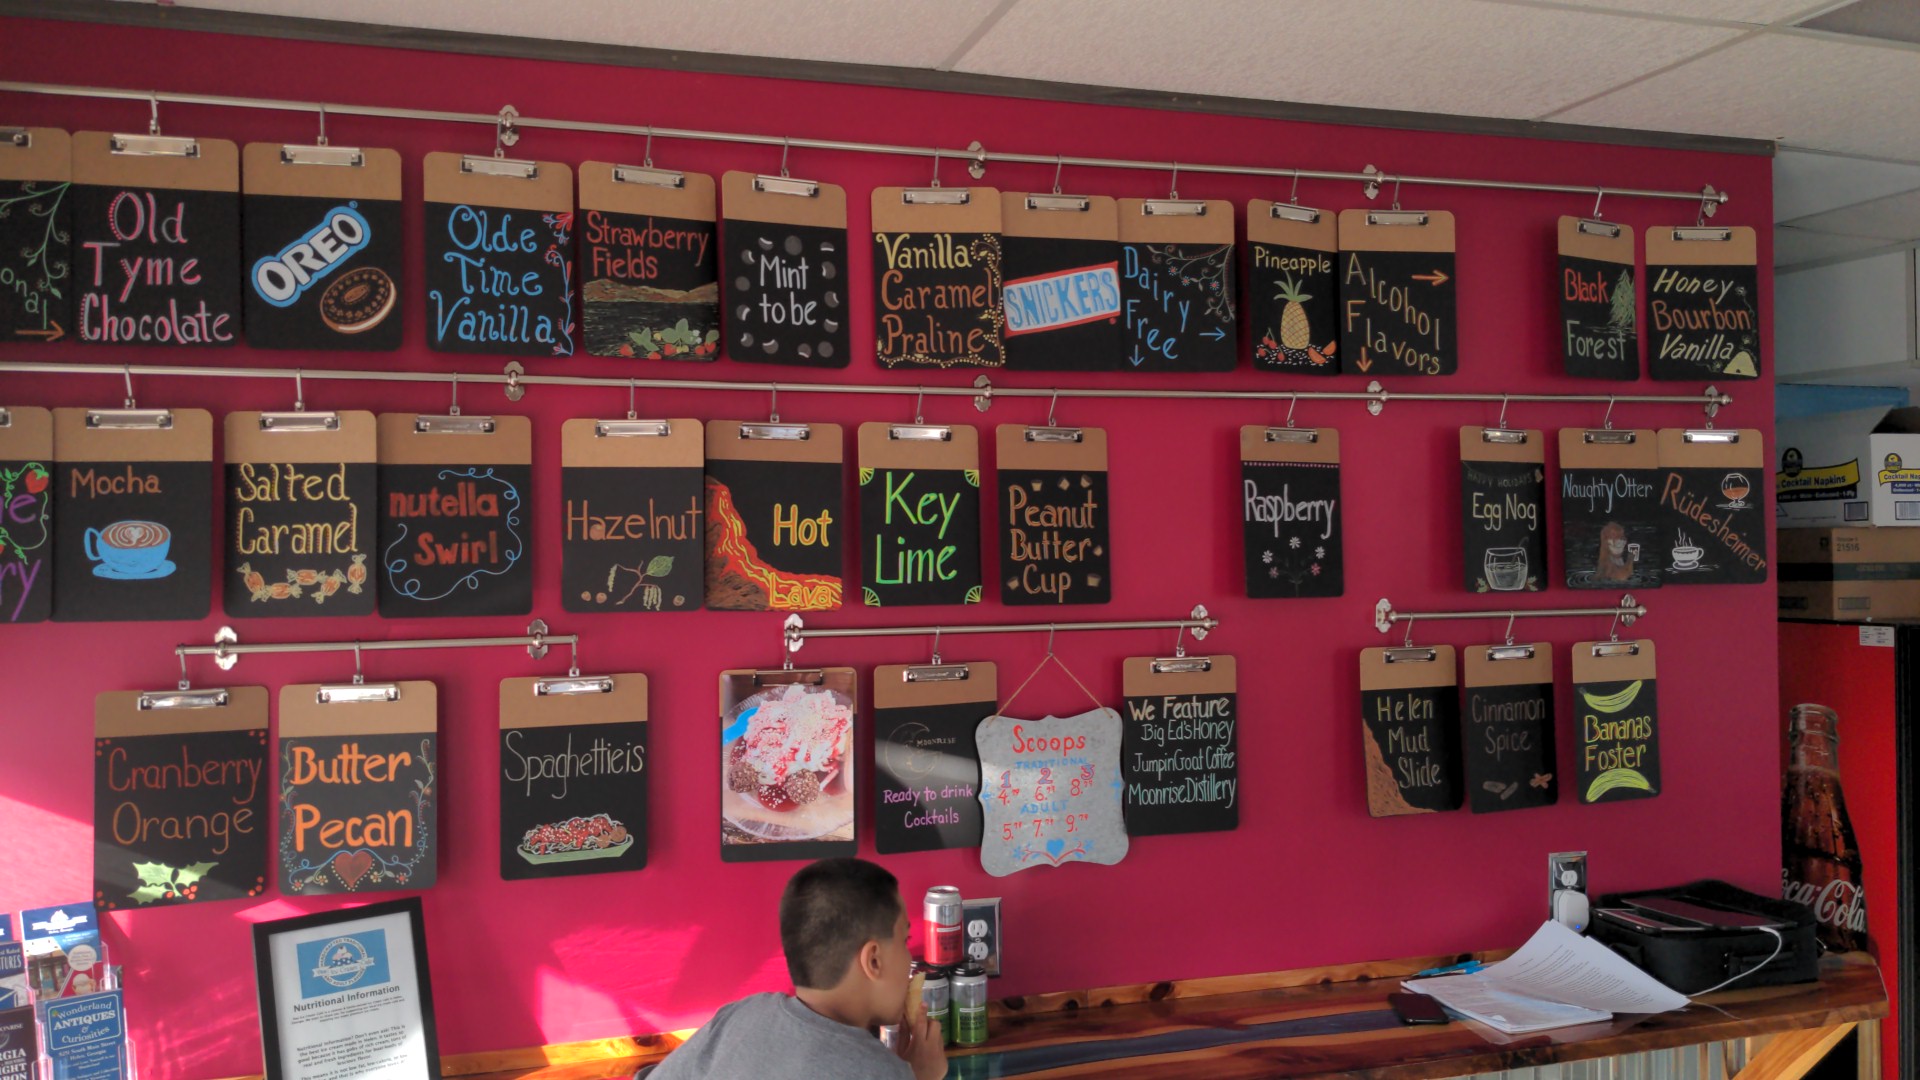 onal
Old
Tyme
Chocolate
OREO
Olde
Time
Vanilla
Strawberry
Fields
Mint
to be
Vanilla
Caramel
Praline
SNICKERS
Dairy
Free
Pineapple
Alcohol
Flavors
Black
Forest
Honey
Bourbon
Vanilla
e
ry
Mocha
Salted
Caramel
nutella
Swirl
Hazelnut
Hot
Lava
Key
Lime
Peanut
Butter
Cup
Raspberry
HAPPY HOLIDAYS
Egg Nog
Naughty Otter
Rüdesheimer
Cranberry
Orange
Butter
Pecan
Spaghettieis
MOONRISE
Ready to drink
Cocktails
Scoops
TRADITIONAL
1 2 3
ADULT
We Feature
Big Ed's Honey
JumpinGoat Coffee
MoonriseDistillery
Helen
Mud
Slide
Cinnamon
Spice
Bananas
Foster
Cocktail Napkins
Coca-Cola
Nutritional Information
Wonderland
ANTIQUES
&
Curiosities